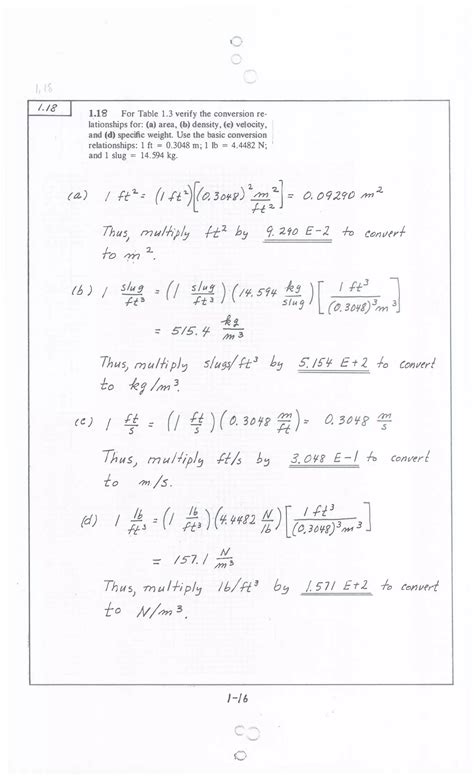 1.18
1.18
1.18 For Table 1.3 verify the conversion re-
lationships for: (a) area, (b) density, (c) velocity,
and (d) specific weight. Use the basic conversion
relationships: 1 ft = 0.3048 m; 1 lb = 4.4482 N;
and 1 slug = 14.594 kg.
(a) 1 ft² = (1 ft²)[(0.3048)² m²/ft²] = 0.09290 m²
Thus, multiply ft² by 9.290 E-2 to convert
to m².
(b) 1 slug/ft³ = (1 slug/ft³)(14.594 kg/slug)[1 ft³/(0.3048)³ m³]
= 515.4 kg/m³
Thus, multiply slugs/ft³ by 5.154 E+2 to convert
to kg/m³.
(c) 1 ft/s = (1 ft/s)(0.3048 m/ft) = 0.3048 m/s
Thus, multiply ft/s by 3.048 E-1 to convert
to m/s.
(d) 1 lb/ft³ = (1 lb/ft³)(4.4482 N/lb)[1 ft³/(0.3048)³ m³]
= 157.1 N/m³
Thus, multiply lb/ft³ by 1.571 E+2 to convert
to N/m³.
1-16